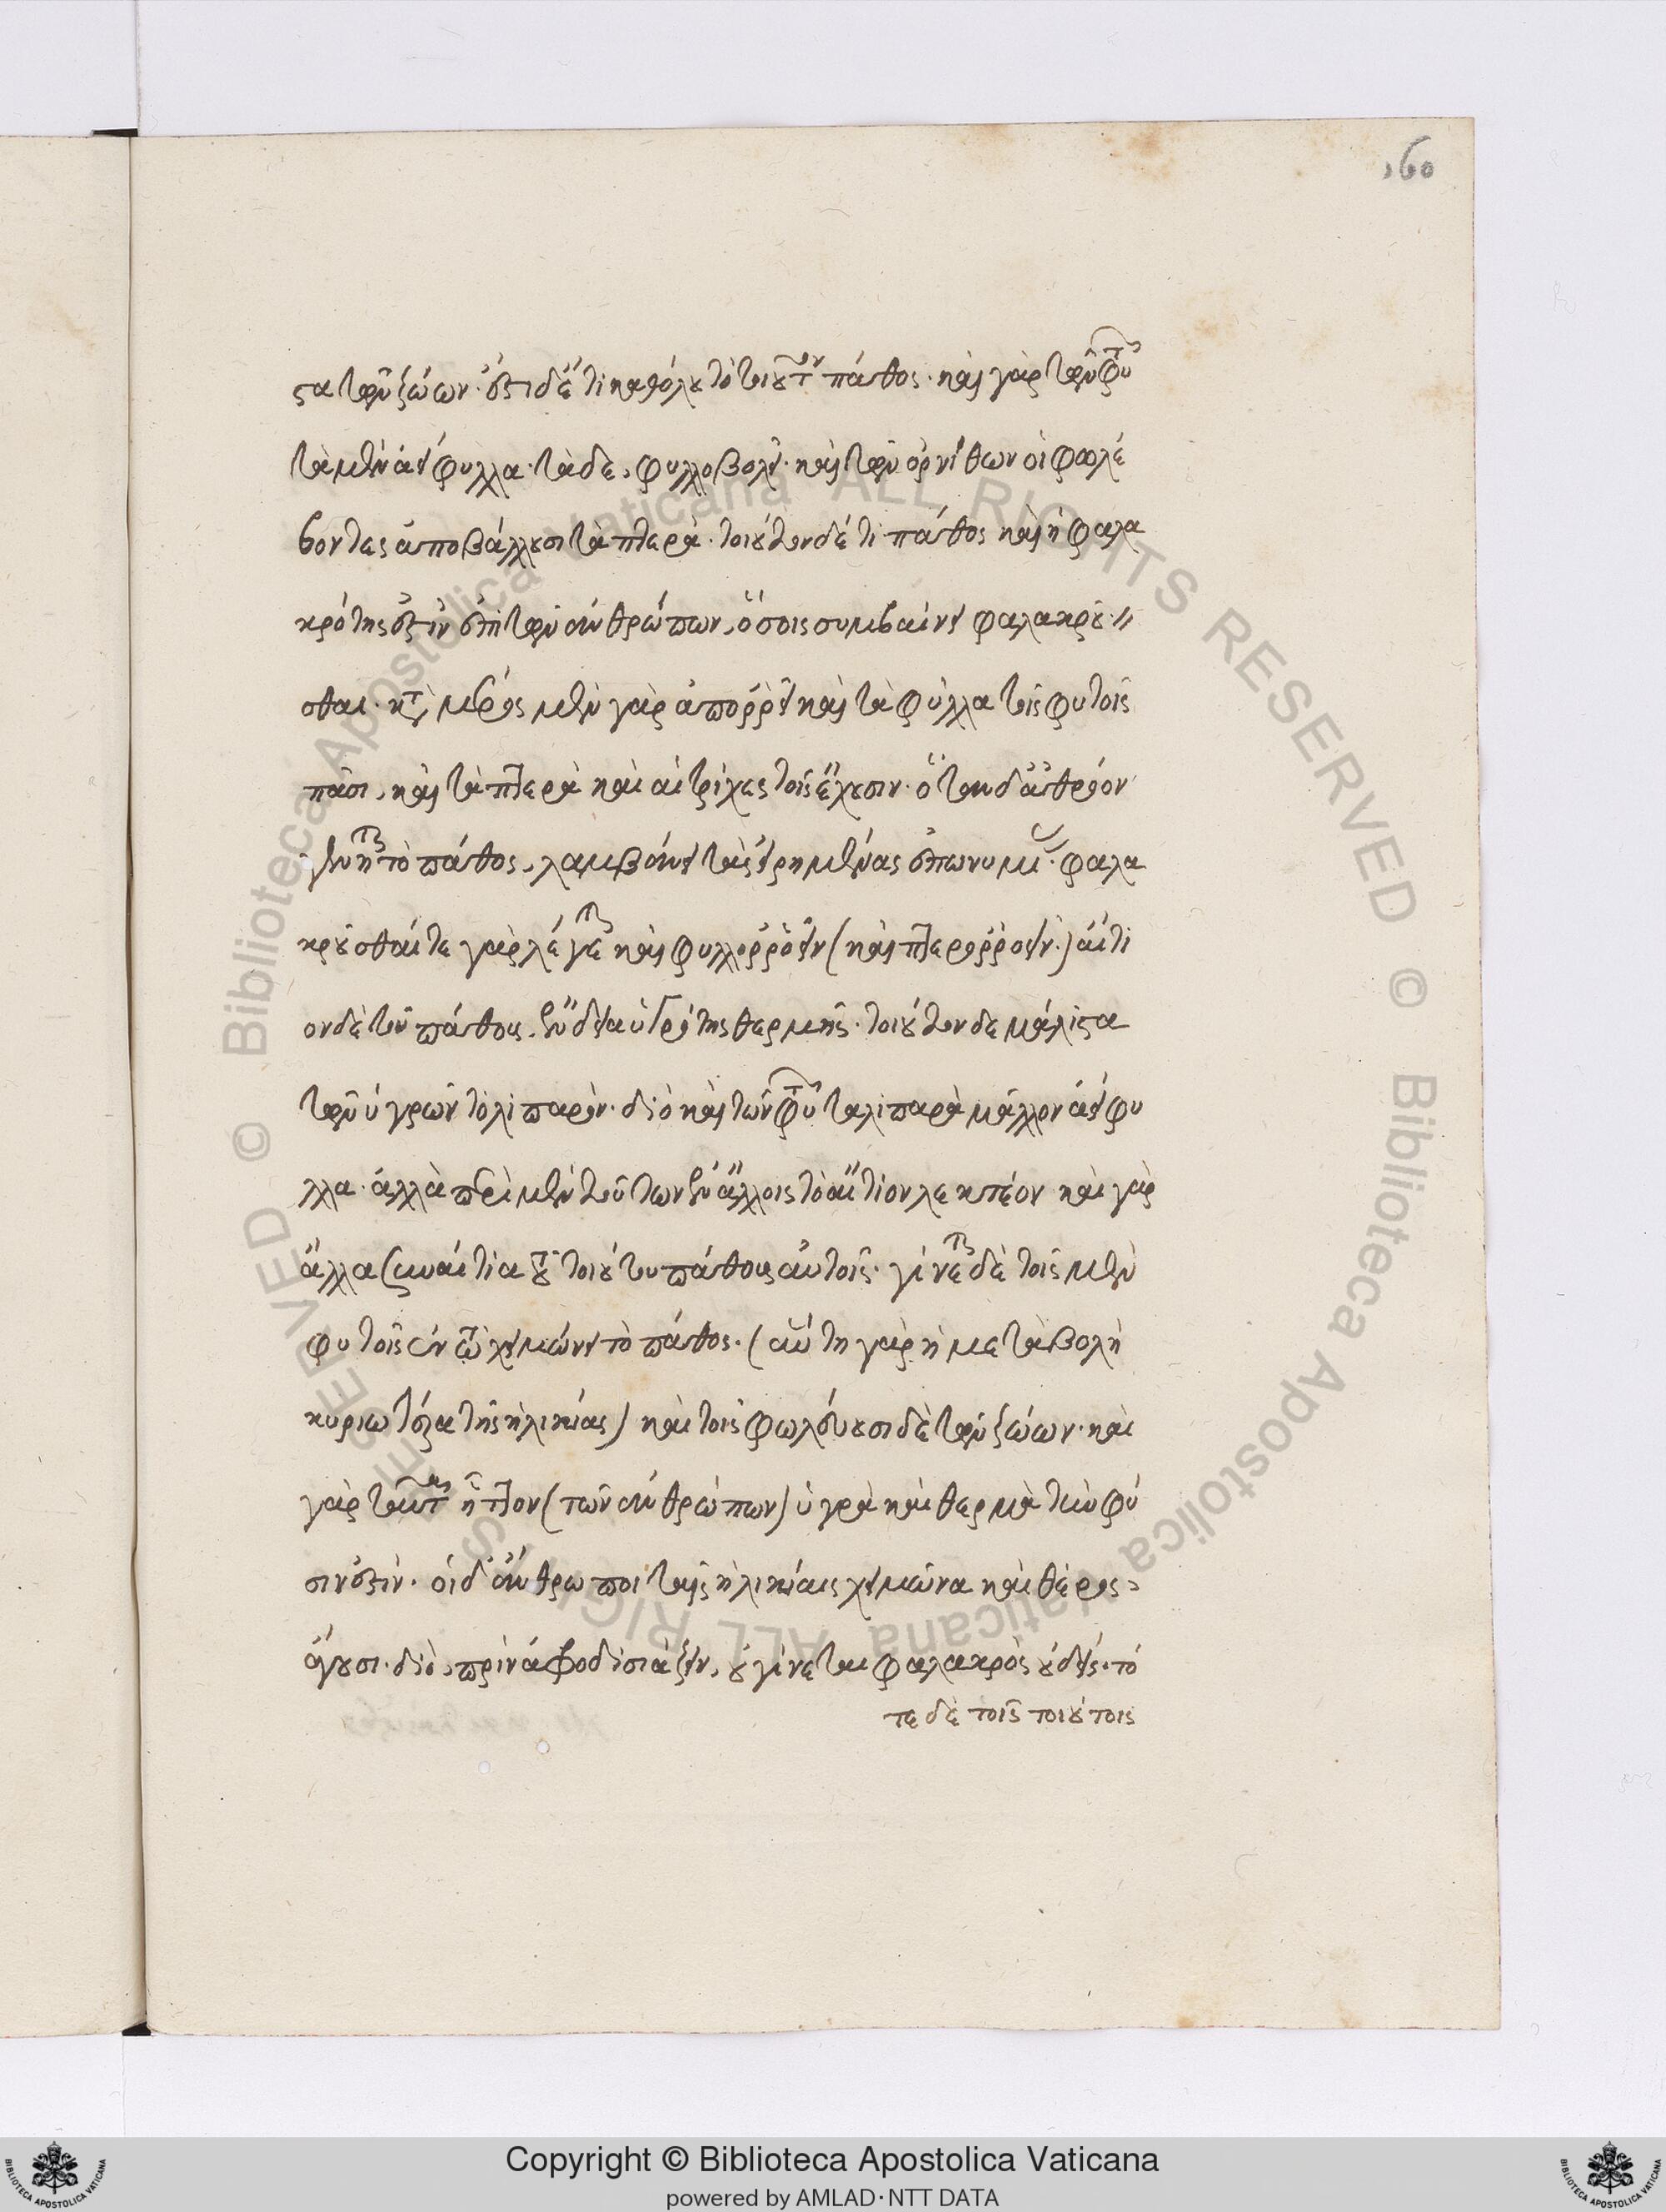 160
στα τῶν ζώων· ἔστι δέ τι καθόλου τὸ τοιοῦτον πάθος· καὶ γὰρ τῶν φυτῶν
τὰ μὲν ἀείφυλλα· τὰ δὲ, φυλλοβολεῖ· καὶ τῶν ὀρνίθων οἱ φωλέ
βοντες ἀποβάλλουσι τὰ πτερά· τοιοῦτον δέ τι πάθος καὶ ἡ φαλα
κρότης ἐστὶν ἐπὶ τῶν ἀνθρώπων, ὅσοις συμβαίνει φαλακροῦ
σθαι· κατὰ μέρος μὲν γὰρ ἀπορρεῖ καὶ τὰ φύλλα τοῖς φυτοῖς
πᾶσι, καὶ τὰ πτερὰ καὶ αἱ τρίχες τοῖς ἔχουσιν· ὅταν δ' ἀθρόον
γένηται τὸ πάθος, λαμβάνει τὰς εἰρημένας ἐπωνυμίας· φαλα
κροῦσθαί τε γὰρ λέγεται καὶ φυλλορροεῖν (καὶ πτερορροεῖν·) αἴτι
ον δὲ τοῦ πάθους, ἔνδεια ὑγρότης θερμῆς· τοιοῦτον δὲ μάλιστα
τῶν ὑγρῶν τὸ λιπαρόν· διὸ καὶ τῶν φυτῶν τὰ λιπαρὰ μᾶλλον ἀείφυ
λλα· ἀλλὰ περὶ μὲν τούτων ἐν ἄλλοις τὸ αἴτιον λεκτέον καὶ γὰρ
ἄλλα συναίτια τοῦ τοιούτου πάθους αὐτοῖς· γίνεται δὲ τοῖς μὲν
φυτοῖς ἐν τῷ χειμῶνι τὸ πάθος· (αὕτη γὰρ ἡ μεταβολὴ
κυριωτέρα τῆς ἡλικίας) καὶ τοῖς φωλεύουσι δὲ τῶν ζώων· καὶ
γὰρ ταῦτα ἧττον (τῶν ἀνθρώπων) ὑγρὰ καὶ θερμὰ τὴν φύ
σιν ἐστίν· οἱ δ' ἄνθρωποι ταῖς ἡλικίαις χειμῶνα καὶ θέρος,
ἄγουσι· διὸ, πρὶν ἀφροδισιάζειν, οὐ γίνεται φαλακρὸς οὐδείς· τό
τε δὲ τοῖς τοιούτοις
Copyright © Biblioteca Apostolica Vaticana
powered by AMLAD·NTT DATA